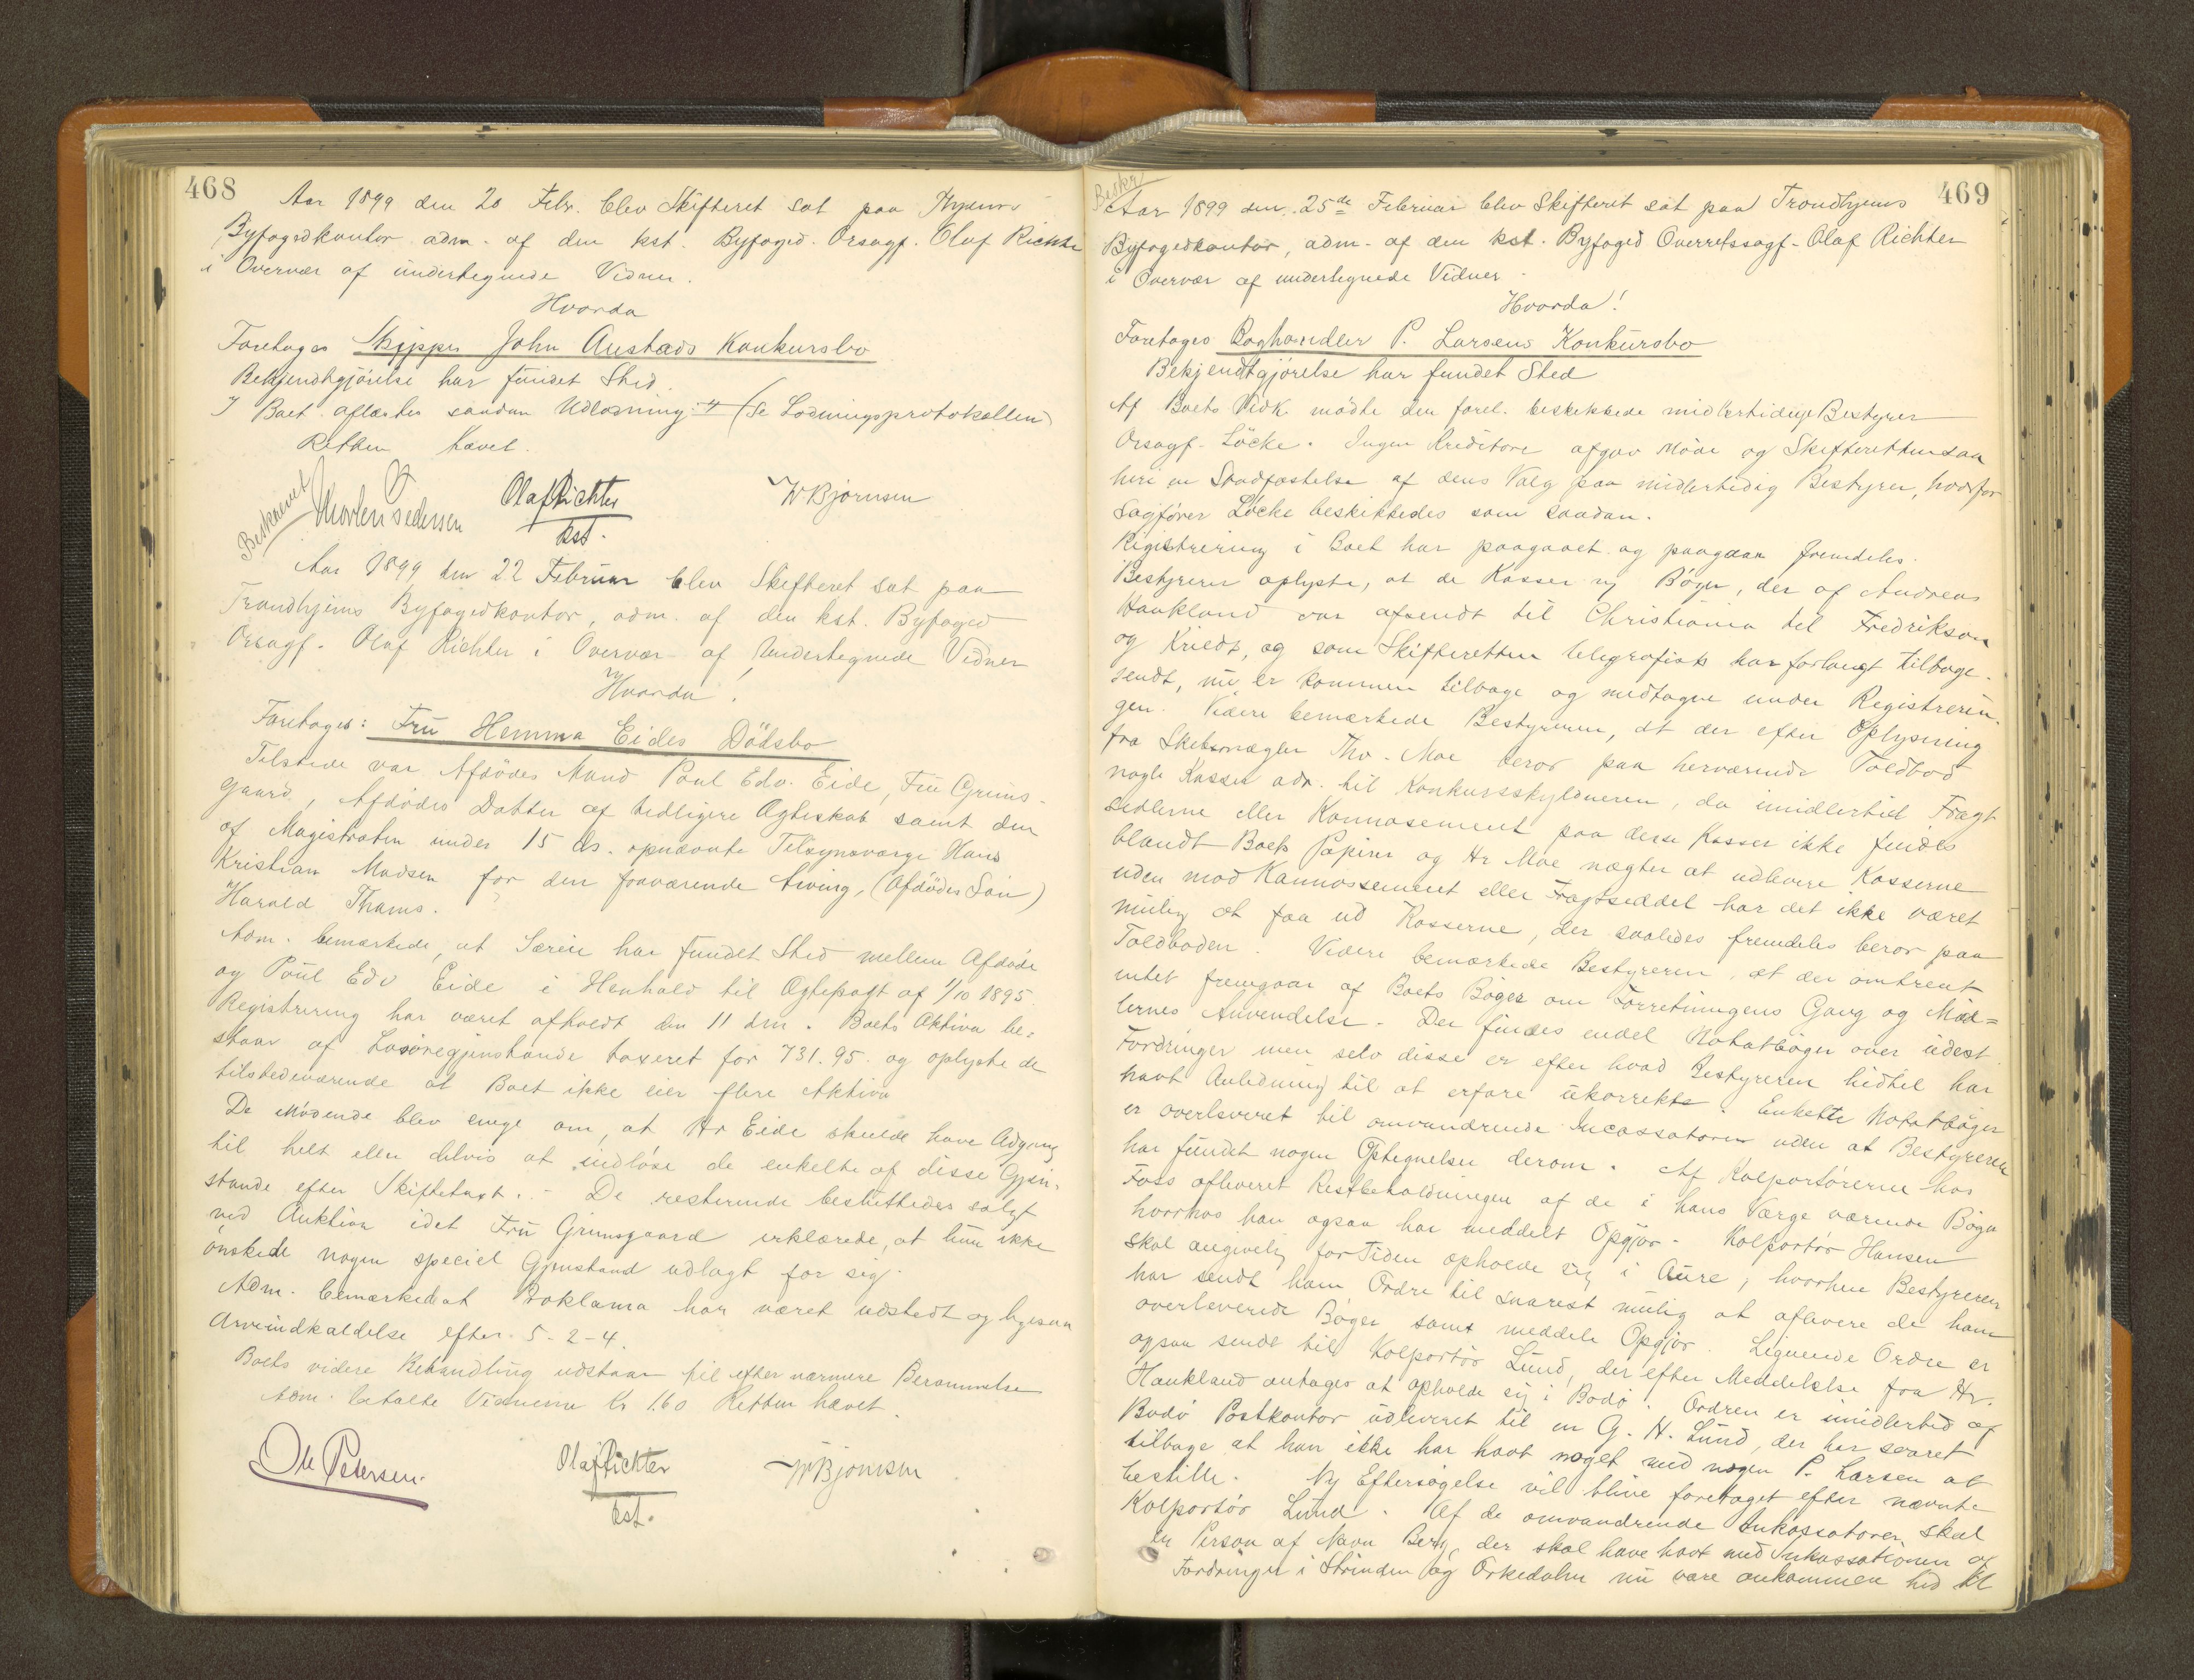 468
Aar 1899 den 20 Febr. blev Skifteret sat paa Thjems
Byfogedkontor adm. af den kst. Byfoged Orsagf. Olaf Richter
i Overvær af undertegnede Vidner.
Hvorda
Foretoges Skipper John Austads Konkursbo
Bekjendtgjörelse har fundet Sted.
I Boet aflæstes saadan Udlodning: (Se Lodningsprotokollen)
Retten hævet.
Beskrevet
Morten Pedersen
Olaf Richter
kst.
W Bjørnsen
Aar 1899 den 22 Februar blev Skifteret sat paa
Trondhjems Byfogedkontor, adm. af den kst. Byfoged
Orsagf. Olaf Richter i Overvær af undertegnede Vidner
Hvorda!
Foretoges: Frü Hemma Eides Dödsbo
Tilstede var Afdödes Mand Poul Edv. Eide, Frü Grims-
gaard, Afdödes Datter af tidligere Ægteskab samt den
af Magistraten under 15 ds. opnævnte Tilsynsværge Hans
Kristian Madsen for den fraværende Arving, (Afdödes Sön)
Harald Thams.
Adm. bemærkede, at Særeie har fundet Sted mellem Afdöde
og Poul Edv Eide i Henhold til Ægtepagt af 1/10 1895.
Registrering har været afholdt den 11 dm. Boets Aktiva be-
staar af Lösöregjenstande taxeret for 731.95. og oplyste de
tilstedeværende at Boet ikke eier flere Aktiva
De Mødende blev enige om, at Hr Eide skulde have Adgang
til helt eller delvis at indløse de enkelte af disse Gjen-
stande efter Skiftetaxt. - De resterende besluttedes solgt
ved Auktion idet Frü Grimsgaard erklærede, at hun ikke
önskede nogen speciel Gjenstand udlagt for sig.
Adm. bemærkede at Proklama har været udstedt og ligesaa
Arveindkaldelse efter 5-2-4.
Boets videre Behandling udstaar til efter nærmere Berammelse
Adm. betalte Vidnerne Kr 1.60 Retten hævet.
Ole Petersen.
Olaf Richter
kst.
W Bjørnsen
469
Beskr
Aar 1899 den 25de Februar blev Skifteret sat paa Trondhjems
Byfogedkontor, adm. af den kst. Byfoged Overretssagf. Olaf Richter
i Overvær af undertegnede Vidner.
Hvorda!
Foretoges Boghandler P. Larsens Konkursbo
Bekjendtgjörelse har fundet Sted
Af Boets Vedk. mödte den forel. beskikkede midlertidige Bestyrer
Orsagf. Löcke. Ingen Kreditore afgav Møde og Skifteretten saa
heri en Stadfæstelse af dens Valg paa midlertidig Bestyrer, hvorfor
Sagfører Löcke beskikkedes som saadan.
Registrering i Boet har paagaaet og paagaar fremdeles.
Bestyreren oplyste, at de Kasser ny Bøger, der af Andreas
Haukland var afsendt til Christiania til Fredrikson
og Kriedt, og som Skifteretten telegrafisk har forlangt tilbage-
sendt, nu er kommen tilbage og medtagne under Registrerin-
gen. Videre bemærkede Bestyreren, at der efter Oplysning
fra Skibsmægler Tho. Moe beror paa herværende Toldbod
nogle Kasser adr. til Konkursskyldneren, da imidlertid Fragt
sedlerne eller Konnosement paa disse Kasser ikke findes
blandt Boets Papirer og Hr Moe nægter at udlevere Kasserne
uden mod Konnossement eller Fragtseddel har det ikke været
mulig at faa ud Kasserne, der saaledes fremdeles beror paa
Toldboden. Videre bemærkede Bestyreren at der omtrent
intet fremgaar af Boets Bøger om Forretningens Gang og Mid-
lernes Anvendelse. Der findes endel Notatbøger over udest
Fordringer men selv disse er efter hvad Bestyreren hidtil har
havt Anledning til at erfare ukorrekte. Enkelte Notatbøger
er overleveret til omvandrende Incassatorer uden at Bestyreren
har fundet nogen Optegnelser derom. Af Kolportörerne har
Foss afleveret Restbeholdningen af de i hans Værge værende Bøger
hvorhos han ogsaa har meddelt Opgjør. Kolportör Hansen
skal angivelig for Tiden opholde sig i Aure, hvorhen Bestyreren
har sendt ham Ordre til snarest mulig at aflevere de ham
overleverede Bøger samt meddele Opgjør. Lignende Ordre er
ogsaa sendt til Kolportör Lund, der efter Meddelelse fra Hr.
Haukland antages at opholde sig i Bodö. Ordren er imidlertid af
Bodö Postkontor udleveret til en G. H. Lund, der har svaret
tilbage at han ikke har havt noget med nogen P. Larsen at
bestille. Ny Eftersøgelse vil blive foretaget efter nævnte
Kolportör Lund. Af de omvandrende Inkassatorer skal
en Person af Navn Berg, der skal have havt med Inkassationen af
Fordringer i Strinden og Orkedalen nu være ankommen hid til